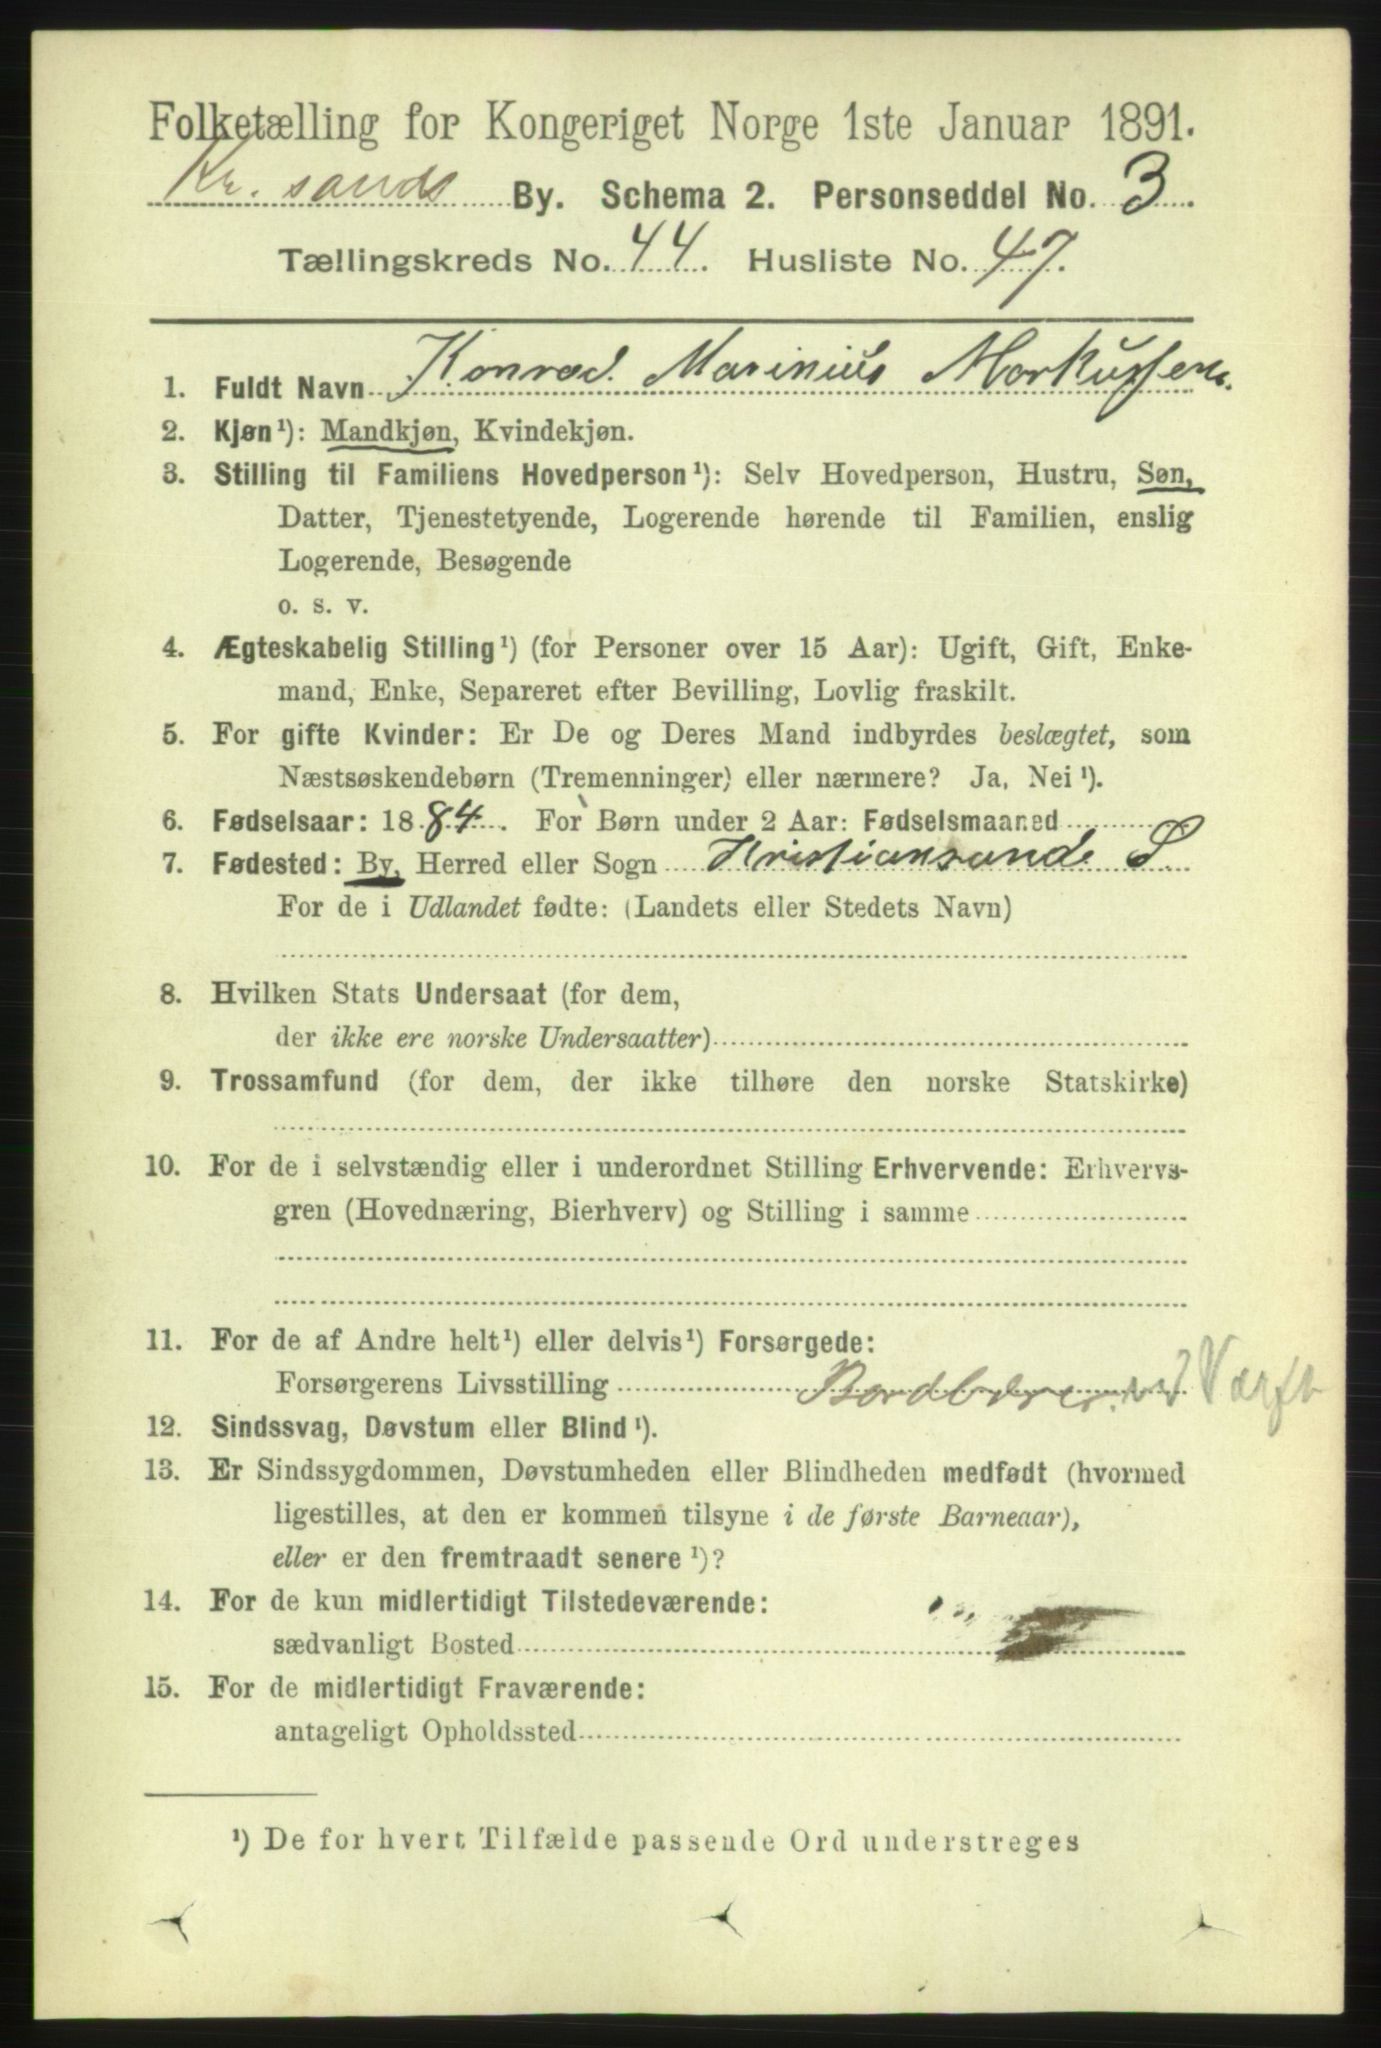 Folketælling for Kongeriget Norge 1ste Januar 1891.
Kr. sands By. Schema 2. Personseddel No. 3.
Tællingskreds No. 44. Husliste No. 47.
1. Fuldt Navn Konrad Marinius Markussen.
2. Kjøn¹): Mandkjøn, Kvindekjøn.
3. Stilling til Familiens Hovedperson¹): Selv Hovedperson, Hustru, Søn,
Datter, Tjenestetyende, Logerende hørende til Familien, enslig
Logerende, Besøgende
o. s. v.
4. Ægteskabelig Stilling¹) (for Personer over 15 Aar): Ugift, Gift, Enke-
mand, Enke, Separeret efter Bevilling, Lovlig fraskilt.
5. For gifte Kvinder: Er De og Deres Mand indbyrdes beslægtet, som
Næstsøskendebørn (Tremenninger) eller nærmere? Ja, Nei¹).
6. Fødselsaar: 1884. For Børn under 2 Aar: Fødselsmaaned
7. Fødested: By, Herred eller Sogn Kristiansands S
For de i Udlandet fødte: (Landets eller Stedets Navn)
8. Hvilken Stats Undersaat (for dem,
der ikke ere norske Undersaatter)
9. Trossamfund (for dem, der ikke tilhøre den norske Statskirke)
10. For de i selvstændig eller i underordnet Stilling Erhvervende: Erhvervs-
gren (Hovednæring, Bierhverv) og Stilling i samme
11. For de af Andre helt¹) eller delvis¹) Forsørgede:
Forsørgerens Livsstilling Bordbærer. vd Værft
12. Sindssvag, Døvstum eller Blind¹).
13. Er Sindssygdommen, Døvstumheden eller Blindheden medfødt (hvormed
ligestilles, at den er kommen tilsyne i de første Barneaar),
eller er den fremtraadt senere¹)?
14. For de kun midlertidigt Tilstedeværende:
sædvanligt Bosted
15. For de midlertidigt Fraværende:
antageligt Opholdssted
¹) De for hvert Tilfælde passende Ord understreges